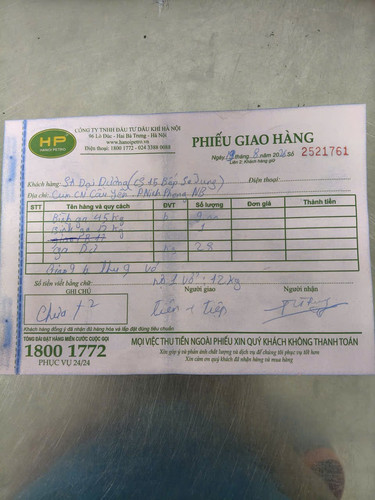 HP
HANOI PETRO
CÔNG TY TNHH ĐẦU TƯ DẦU KHÍ HÀ NỘI
96 Lò Đúc - Hai Bà Trưng - Hà Nội
www.hanoipetro.vn
Điện thoại: 1800 1772 - 024 3388 9088
PHIẾU GIAO HÀNG
Ngày 19 tháng 8 năm 20 Số 2521761
Liên 2: Khách hàng giữ
Khách hàng: SA Đại Dương (CS 15 Bếp Sử dụng) Điện thoại:
Địa chỉ: Cụm CN Cầu Yên - P Ninh Phong NB
STT Tên hàng và quy cách ĐVT Số lượng Đơn giá Thành tiền
Bình ga 45 kg
Bình ga 12 kg 1
Ga Dư kg 28
Số tiền viết bằng chữ: nợ 1 vỏ - 12 kg
GHI CHÚ Người giao Người nhận
Chưa t2 tiến tiệp
Khách hàng đồng ý đã nhận đủ hàng hóa và lắp đặt đúng tiêu chuẩn
TỔNG ĐÀI ĐẶT HÀNG MIỄN CƯỚC CUỘC GỌI
1800 1772
PHỤC VỤ 24/24
MỌI VIỆC THU TIỀN NGOÀI PHIẾU XIN QUÝ KHÁCH KHÔNG THANH TOÁN
Xin góp ý và phản ánh chất lượng và dịch vụ để chúng tôi phục vụ tốt hơn
Xin cảm ơn quý khách đã nhận hàng và mua hàng